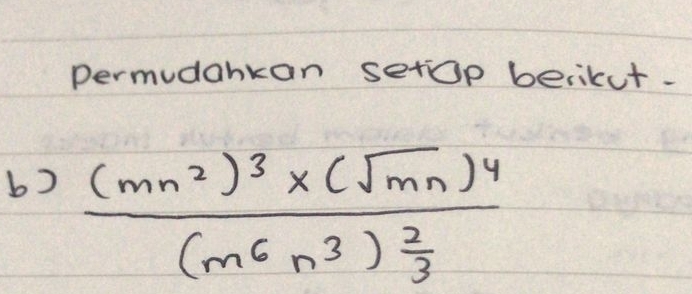 Permudahkan setiap berikut.
b) (mn²)³ × (√mn)⁴
(m⁶ n³) 2/3